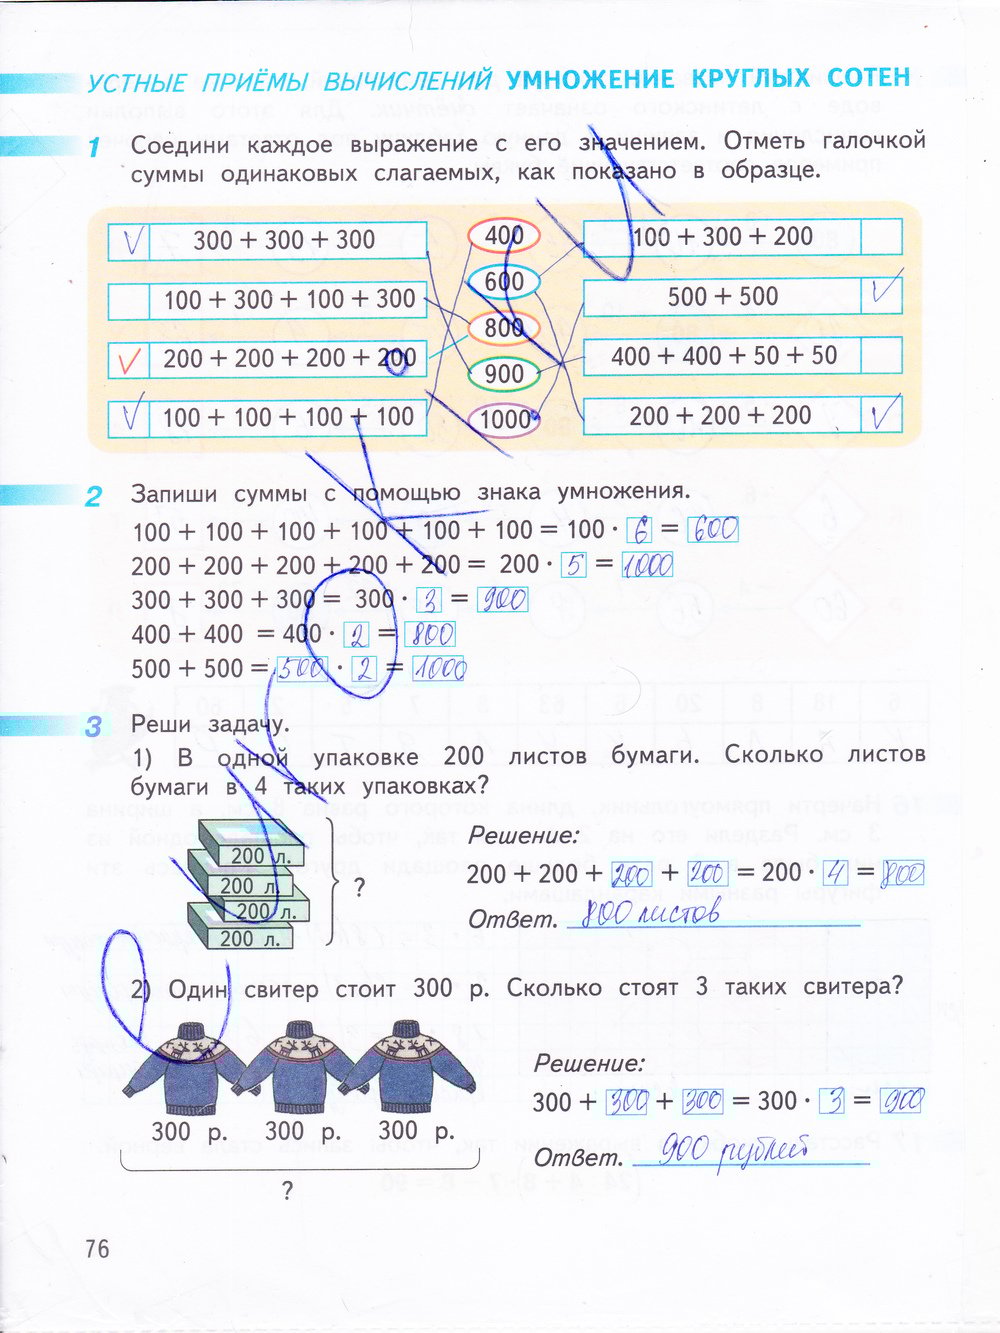 УСТНЫЕ ПРИЁМЫ ВЫЧИСЛЕНИЙ УМНОЖЕНИЕ КРУГЛЫХ СОТЕН
1 Соедини каждое выражение с его значением. Отметь галочкой
суммы одинаковых слагаемых, как показано в образце.
300 + 300 + 300
100 + 300 + 100 + 300
200 + 200 + 200 + 200
100 + 100 + 100 + 100
400
600
800
900
1000
100 + 300 + 200
500 + 500
400 + 400 + 50 + 50
200 + 200 + 200
2 Запиши суммы с помощью знака умножения.
100 + 100 + 100 + 100 + 100 + 100 = 100 · 6 = 600
200 + 200 + 200 + 200 + 200 = 200 · 5 = 1000
300 + 300 + 300 = 300 · 3 = 900
400 + 400 = 400 · 2 = 800
500 + 500 = 500 · 2 = 1000
3 Реши задачу.
1) В одной упаковке 200 листов бумаги. Сколько листов
бумаги в 4 таких упаковках?
200 л.
200 л.
200 л.
200 л.
?
Решение:
200 + 200 + 200 + 200 = 200 · 4 = 800
Ответ. 800 листов
2) Один свитер стоит 300 р. Сколько стоят 3 таких свитера?
300 р. 300 р. 300 р.
?
Решение:
300 + 300 + 300 = 300 · 3 = 900
Ответ. 900 рублей
76